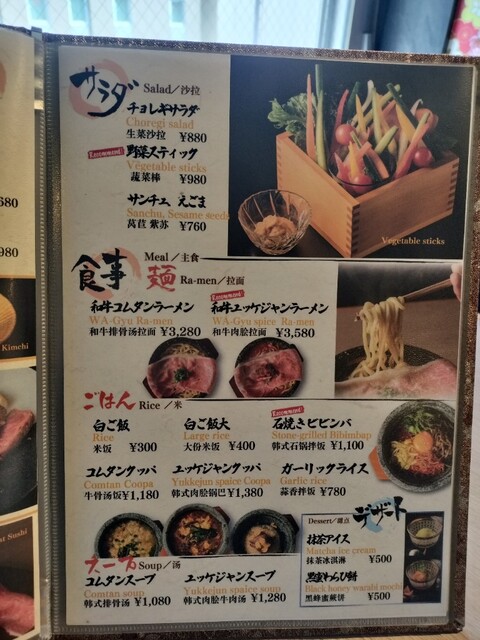 サラダ Salad／沙拉
チョレギサラダ
Choregi salad
生菜沙拉 ¥880
Recommend! 野菜スティック
Vegetable sticks
蔬菜棒 ¥980
サンチュ えごま
Sanchu, Sesame seeds
莴苣 紫苏 ¥760
Vegetable sticks
680
980
Kimchi
st Sushi
食事 Meal／主食
麺 Ra-men／拉面
和牛コムタンラーメン
WA-Gyu Ra-men
和牛排骨汤拉面 ¥3,280
Recommend!
和牛ユッケジャンラーメン
WA-Gyu spice Ra-men
和牛肉脍拉面 ¥3,580
ごはん Rice／米
白ご飯
Rice
米饭 ¥300
白ご飯大
Large rice
大份米饭 ¥400
Recommend!
石焼きビビンバ
Stone-grilled Bibimbap
韩式石锅拌饭 ¥1,100
コムタンクッパ
Comtan Coopa
牛骨汤饭 ¥1,180
ユッケジャンクッパ
Yukkejun spaice Coopa
韩式肉脍锅巴 ¥1,380
ガーリックライス
Garlic rice
蒜香拌饭 ¥780
スープ Soup／汤
コムタンスープ
Comtan soup
韩式排骨汤 ¥1,080
ユッケジャンスープ
Yukkejun spaice soup
韩式肉脍牛肉汤 ¥1,280
デザート
Dessert／甜点
抹茶アイス
Matcha ice cream
抹茶冰淇淋 ¥500
黒蜜わらび餅
Black honey warabi mochi
黑蜂蜜蕨饼 ¥500